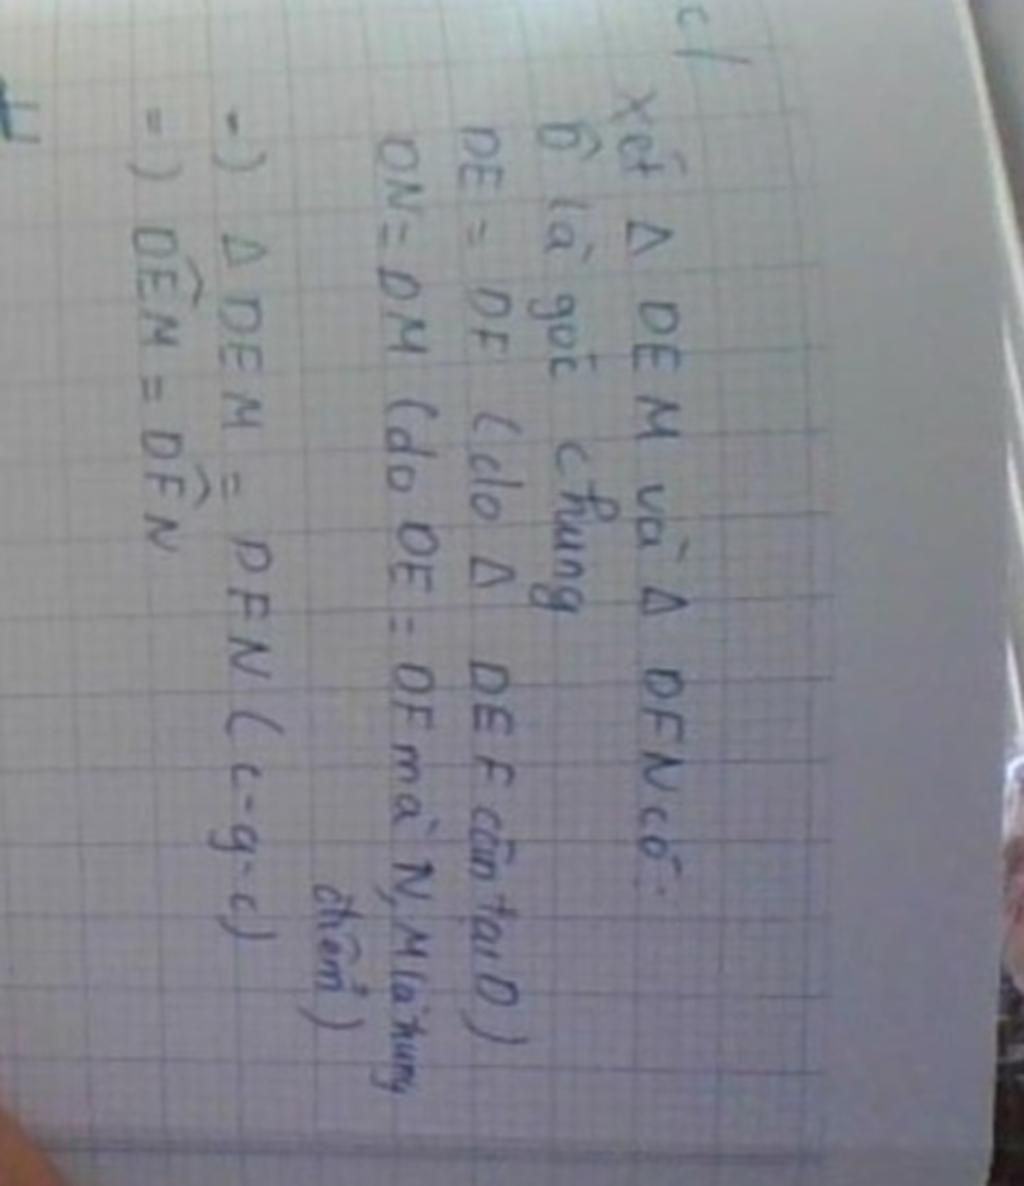 c/
Xét Δ DEM và Δ DFN có:
D̂ là góc chung
DE = DF (do Δ DEF cân tại D)
DN = DM (do DE = DF mà N, M là trung
điểm)
=) Δ DEM = DFN (c-g-c)
=) DÊM = DF̂N